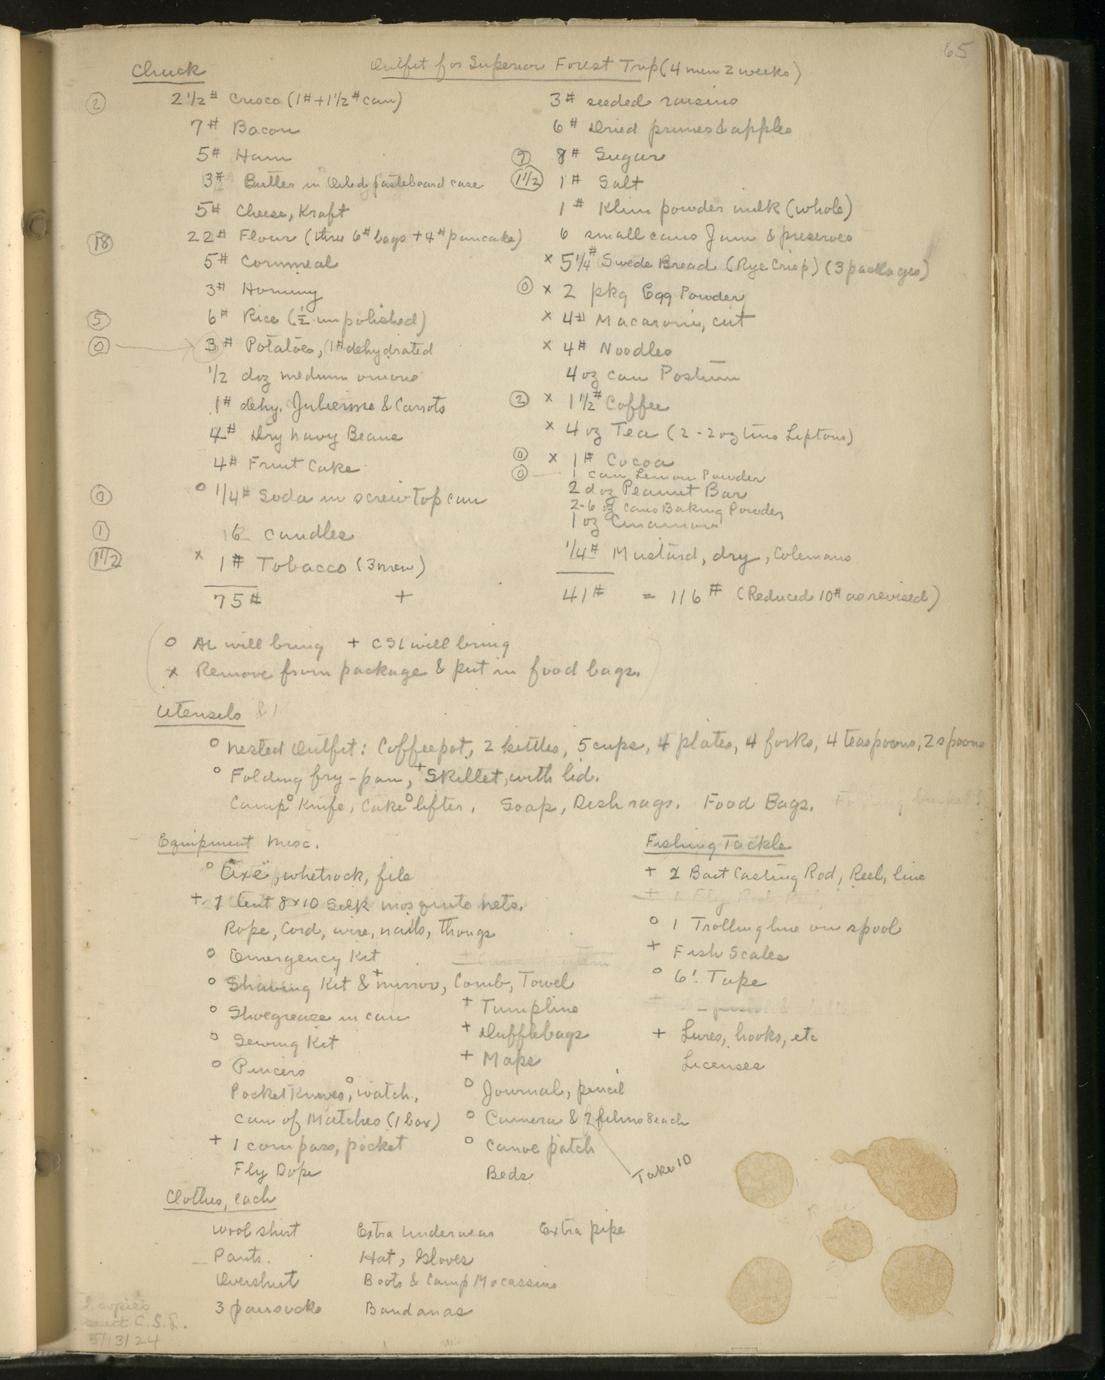 65
Chuck
Outfit for Superior Forest Trip (4 men 2 weeks)
② 2 1/2# Crisco (1# + 1 1/2# can)
7# Bacon
5# Ham
3# Butter in oiled pasteboard case
5# Cheese, Kraft
⑱ 22# Flour (three 6# bags + 4# pancake)
5# Cornmeal
3# Hominy
⑤ 6# Rice (1/2 unpolished)
⓪ 3# Potatoes, 1# dehydrated
1/2 doz medium onions
1# dehy. Julienne & Carrots
4# Dry Navy Beans
4# Fruit Cake
⓪ o 1/4# Soda in screw top can
① 16 candles
(1 1/2) x 1# Tobacco (3 men)
75# +
3# seeded raisins
6# Dried prunes & apples
⑨ 8# Sugar
(1 1/2) 1# Salt
1# Klim powder milk (whole)
6 small cans Jam & preserves
x 5 1/4# Swede Bread (Rye Crisp) (3 packages)
⓪ x 2 pkg Egg Powder
x 4# Macaroni, cut
x 4# Noodles
4 oz can Postum
② x 1 1/2# Coffee
x 4 oz Tea (2 - 2 oz tins Liptons)
⓪ x 1# Cocoa
⓪ 1 can Lemon Powder
2 doz Peanut Bar
2-6 oz cans Baking Powder
1 oz Cinnamon
1/4# Mustard, dry, Colemans
41# = 116# (Reduced 10# as revised)
o AL will bring + CSL will bring
x Remove from package & put in food bags.
Utensils
o Nested Outfit: Coffeepot, 2 kettles, 5 cups, 4 plates, 4 forks, 4 teaspoons, 2 spoons
o Folding fry-pan, + Skillet, with lid.
Camp o Knife, Cake o lifter, Soap, Dish rags. Food Bags.
Equipment Misc.
o Axe, whetrock, file
+ 1 Tent 8x10 Silk mosquito nets.
Rope, Cord, wire, nails, thongs
o Emergency Kit
o Shaving Kit & + mirror, Comb, Towel
o Shoegrease in can
o Sewing Kit
o Pincers
Pocket Knives, o watch,
can of Matches (1 box)
+ 1 compass, pocket
Fly Dope
+ Tumpline
+ Dufflebags
+ Maps
o Journal, pencil
o Camera & 2 films 8 each
o Canoe patch
Take 10
Beds
Fishing Tackle
+ 2 Bait Casting Rod, Reel, line
o 1 Trolling line on spool
+ Fish Scales
o 6' Tape
+ Lures, hooks, etc
Licenses
Clothes, each
Wool shirt Extra underwear Extra pipe
Pants. Hat, Gloves
Overshirt Boots & Camp Mocassins
3 pair socks Bandanas
2 copies
sent C.S.L.
5/13/24